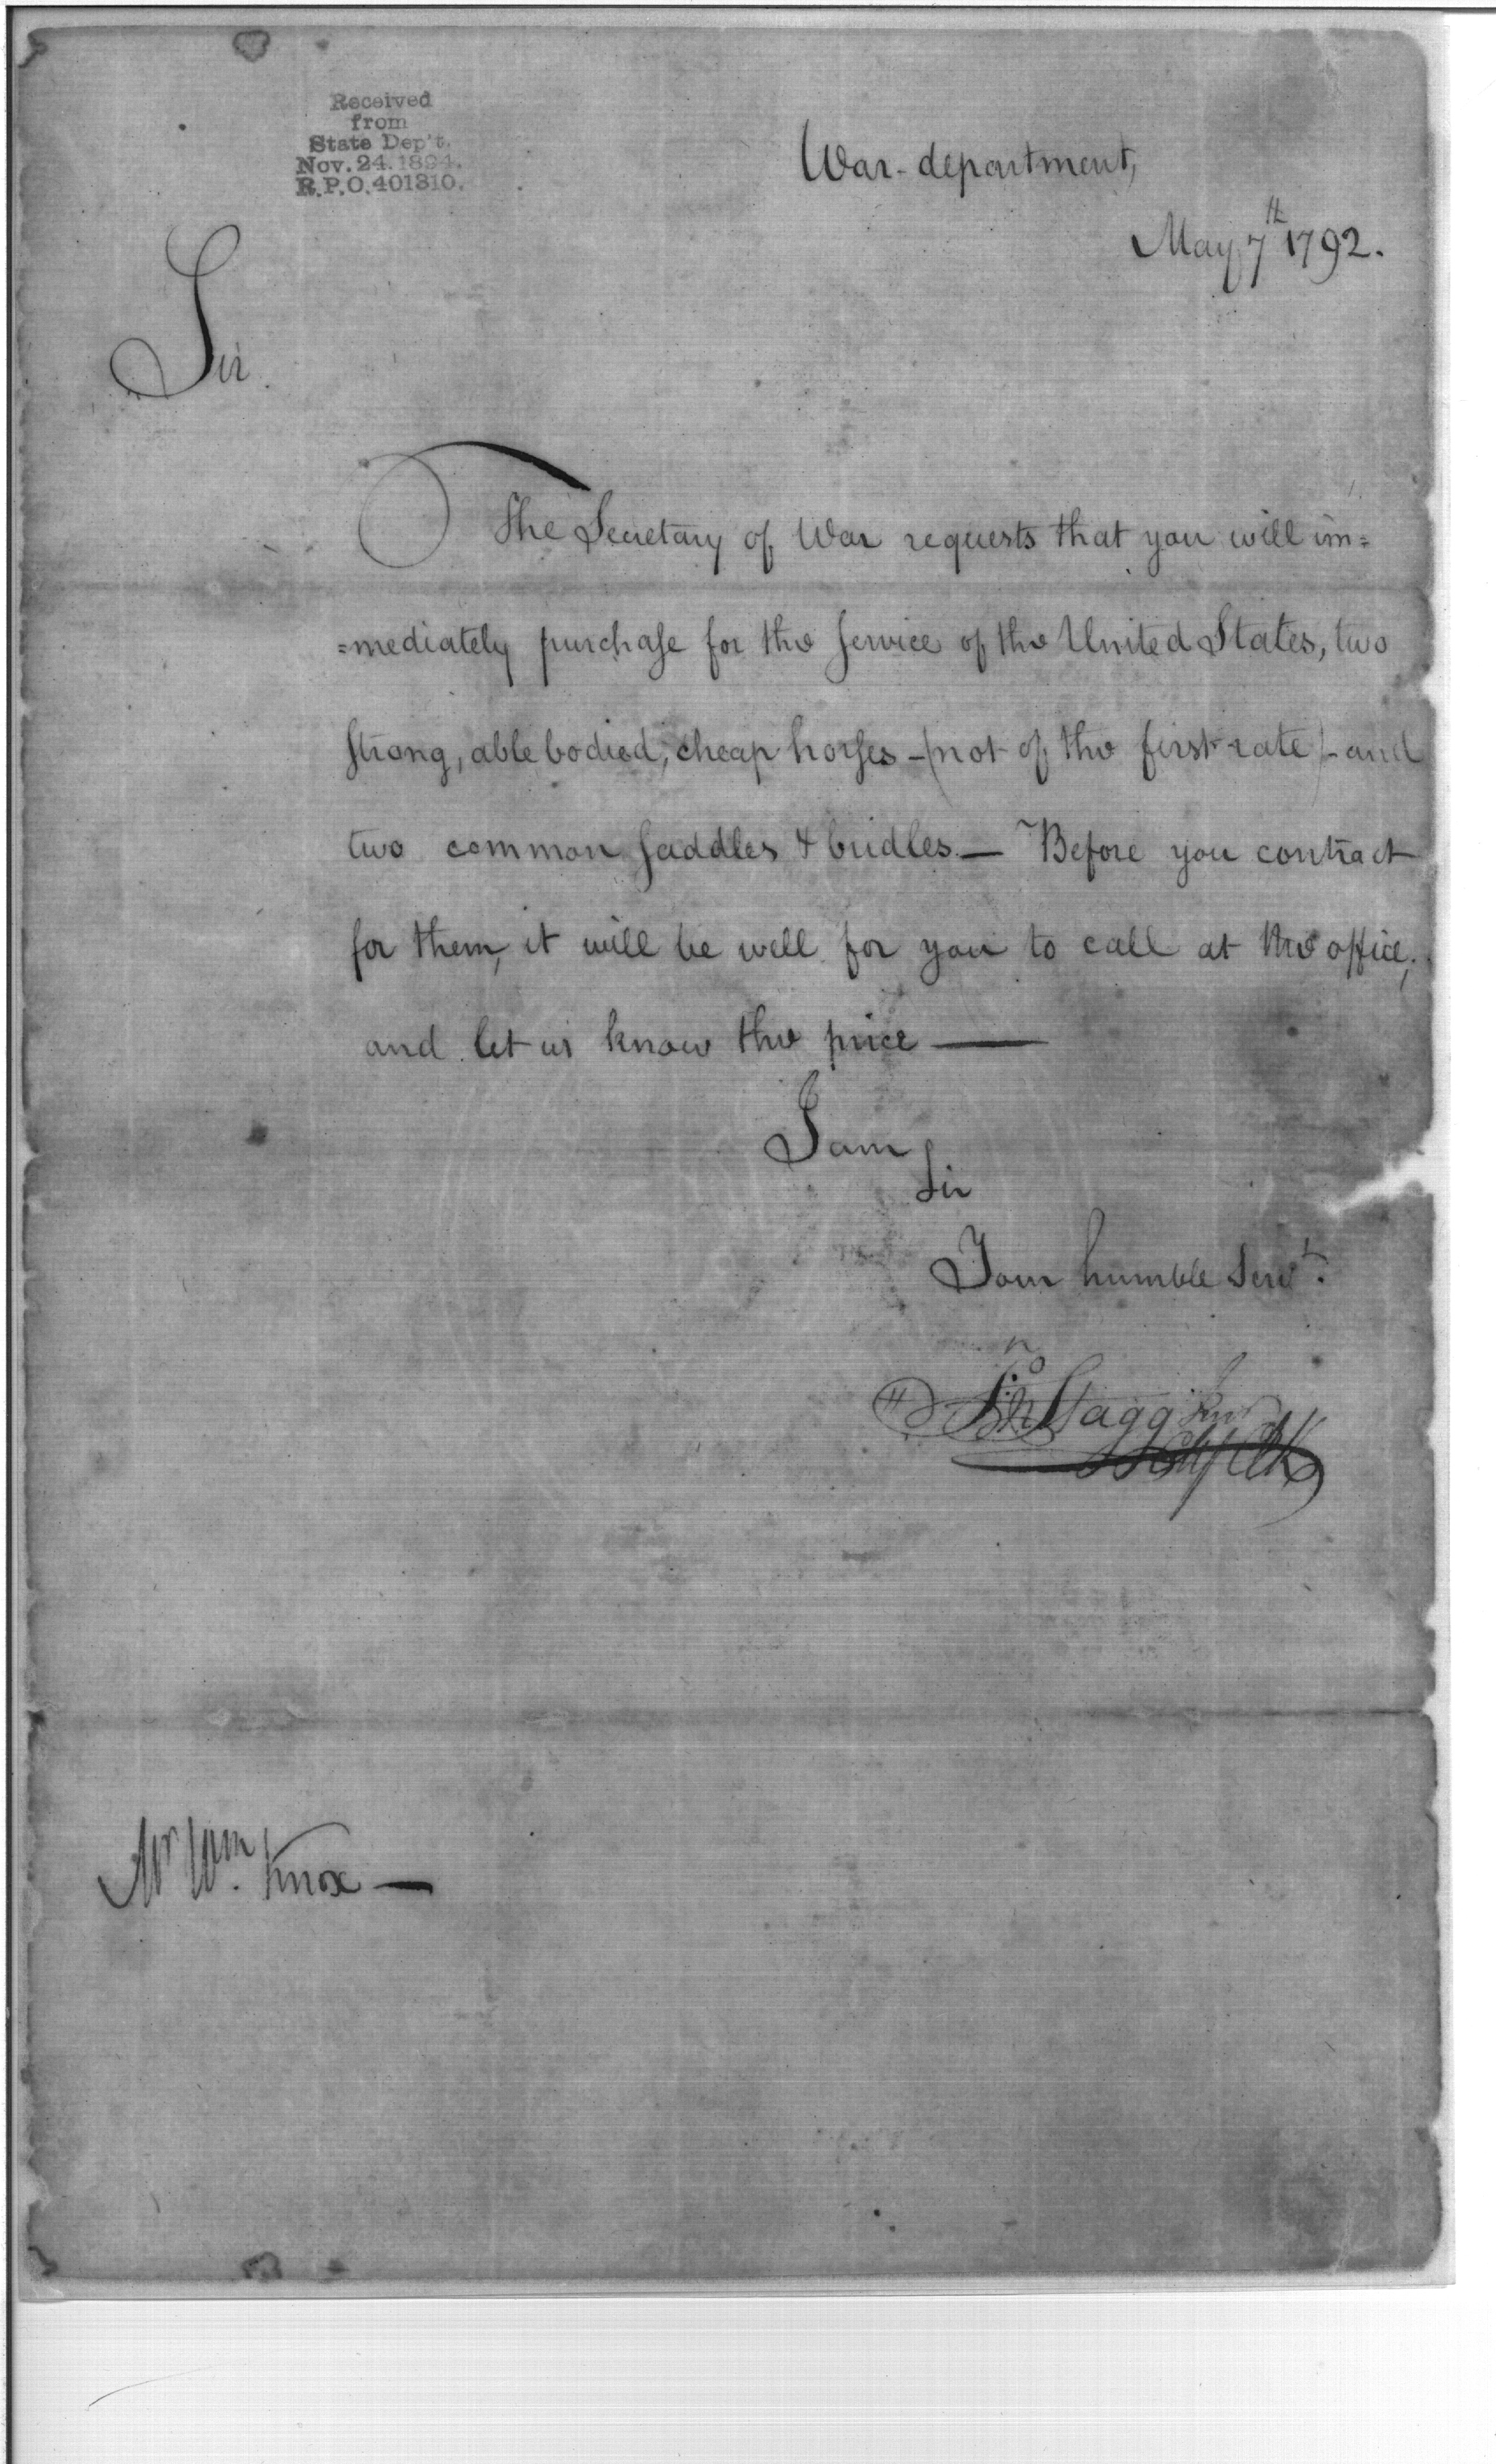 Received
from
State Dep't.
Nov. 24. 1894.
R.P.O. 401310.
War-department,
May 7th 1792.
Sir.
The Secretary of War requests that you will im=
=mediately purchase for the service of the United States, two
strong, able bodied, cheap horses - (not of the first rate) - and
two common saddles & bridles. — Before you contract
for them, it will be well for you to call at the office,
and let us know the price —
I am
Sir
Your humble Servt.
Jno Stagg Junr
Chf Clk
Mr Wm. Knox —